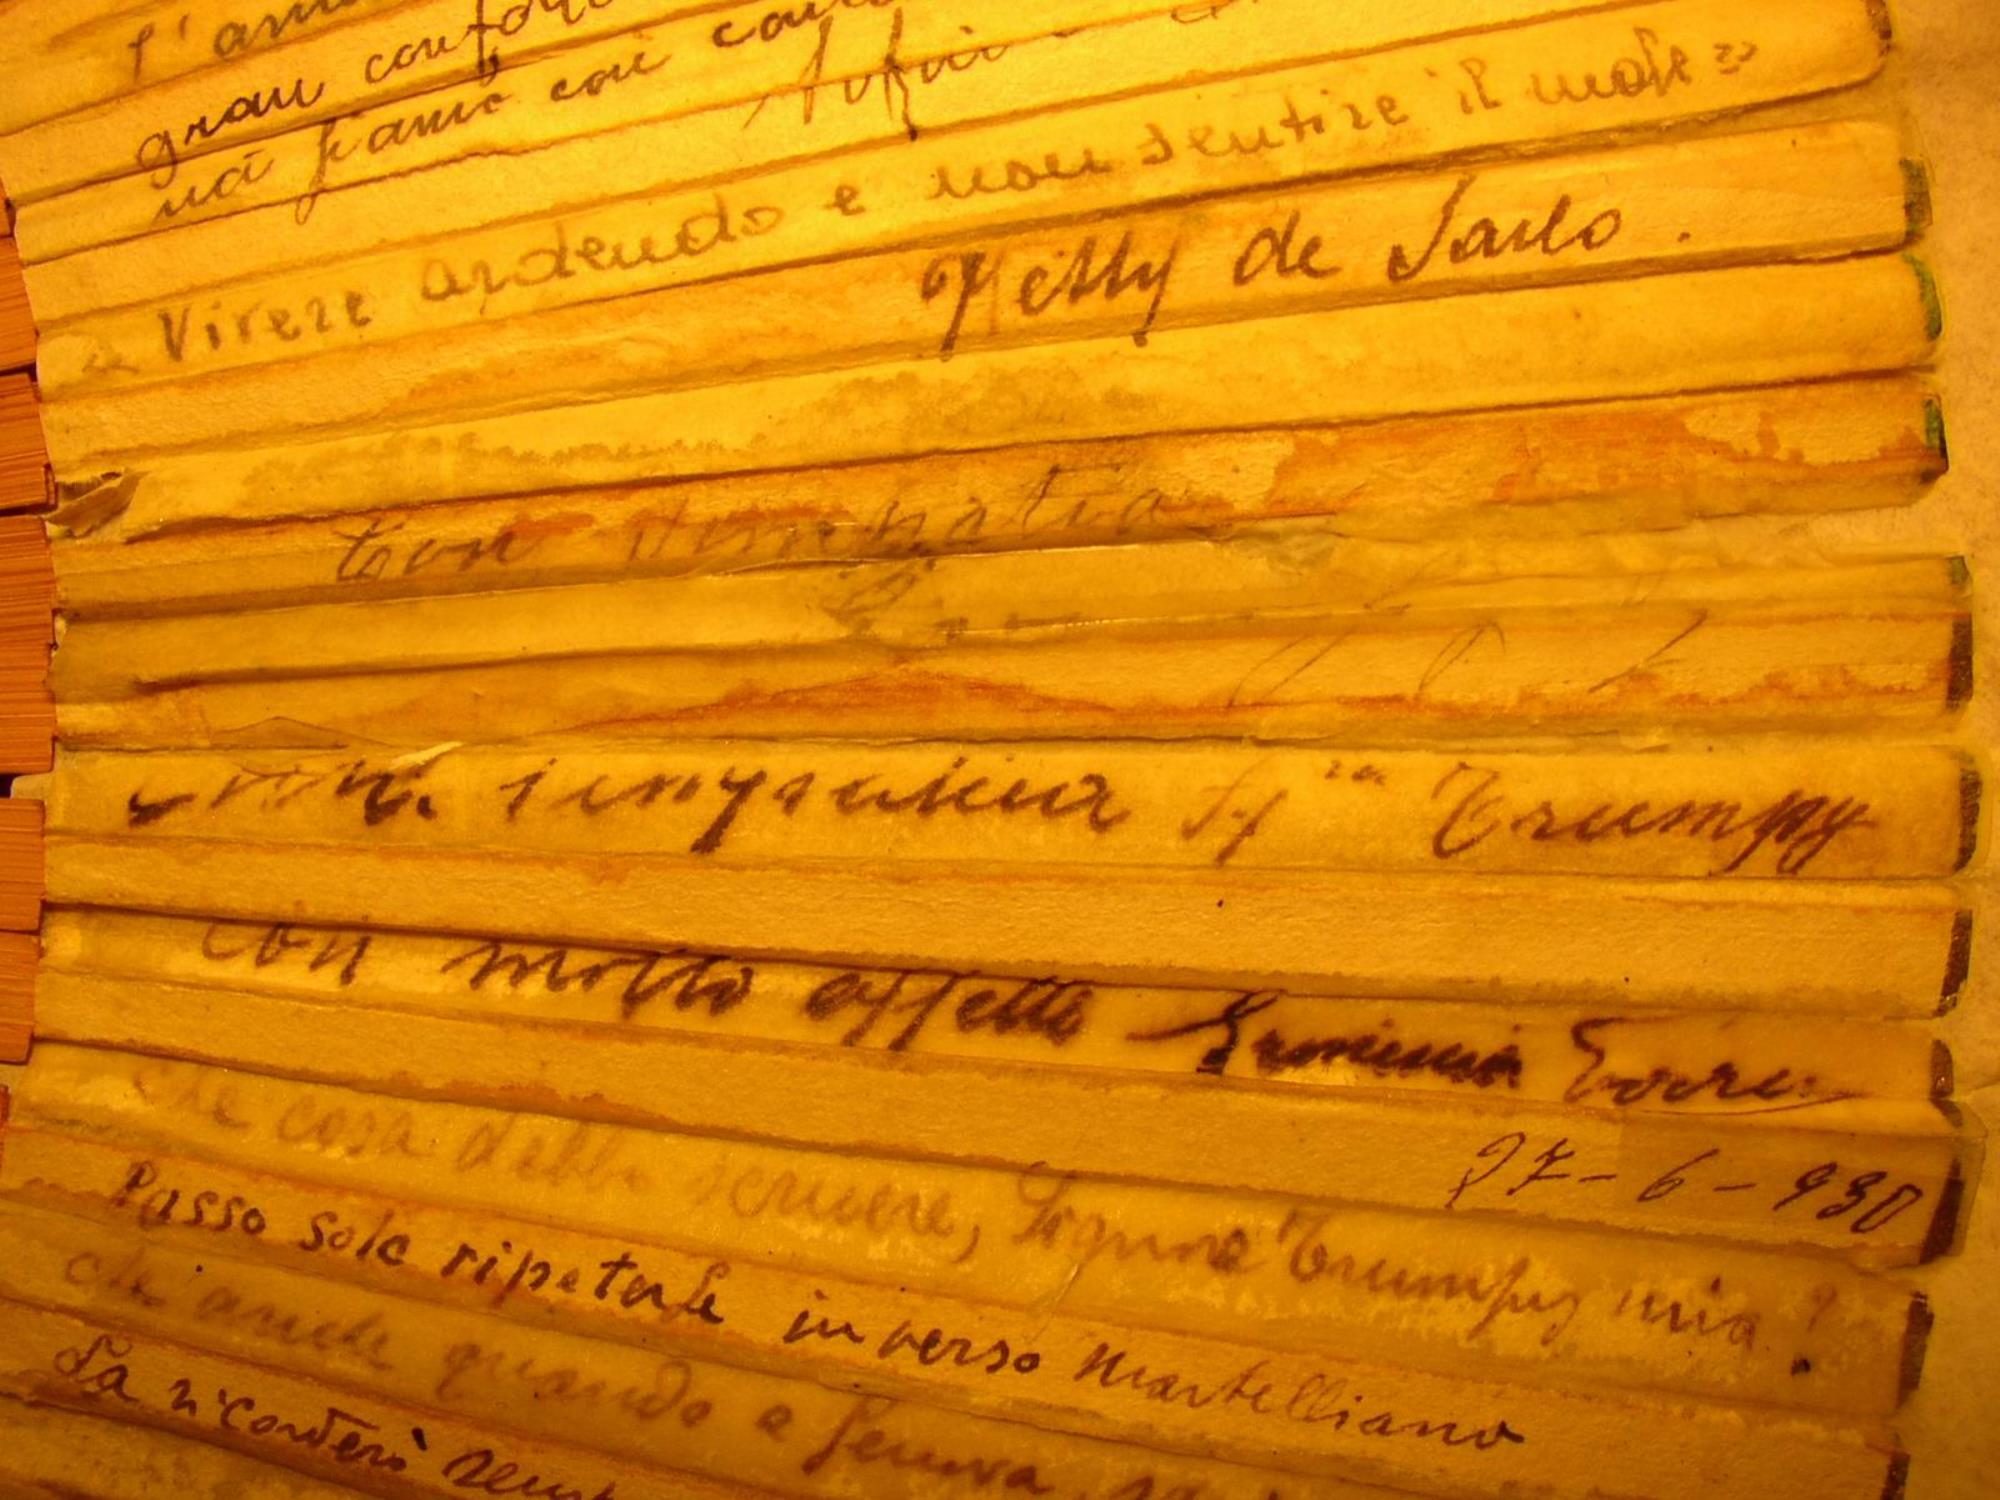 l'am
gran confor
na siamo con
« Vivere ardendo e non sentire il male »
Netty de Sarlo.
Con simpatia
simpatia Sig.ra Trumpy
con molto affetto Erminia
27-6-930
che cosa debbo scrivere, Signora Trumpy mia!
Posso solo ripeterle in verso martelliano
che anche quando a Genova
La ricorderò sempr